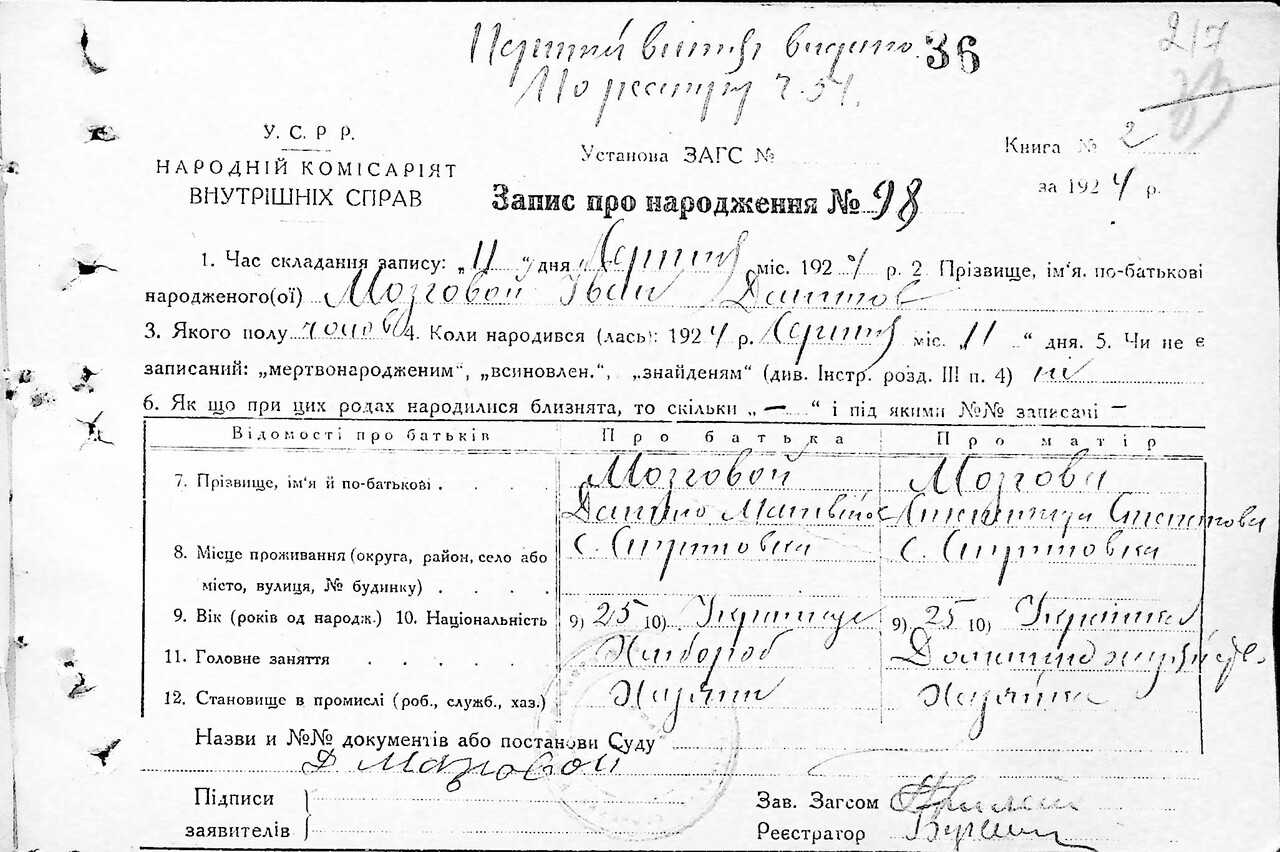 Перший витяг видано 36 217
По реєстру ч. 54. 83
У. С. Р. Р.
НАРОДНІЙ КОМІСАРІЯТ
ВНУТРІШНІХ СПРАВ
Установа ЗАГС №
Книга № 2
за 1924 р.
Запис про народження № 98
1. Час складання запису: „11“ дня Серпня міс. 1924 р. 2 Прізвище, ім‘я. по-батькові
народженого(ої) Мозговой Іван Данилов
3. Якого полу чолов 4. Коли народився (лась): 1924 р. Серпня міс. „11“ дня. 5. Чи не є
записаний: „мертвонародженим“, „всиновлен.“, „знайденям“ (див. Інстр. розд. III п. 4) ні
6. Як що при цих родах народилися близнята, то скільки „—“ і під якими №№ записачі —
Відомості про батьків Про батька Про матір
7. Прізвище, ім‘я й по-батькові . . . . Мозговой Мозгова
Данило Матвійов Степанова
8. Місце проживання (округа, район, село або с. с.
місто, вулиця, № будинку) . . . .
9. Вік (років од народж.) 10. Національність 9) 25 10) Українець 9) 25 10) Українка
11. Головне заняття . . . . . . Хлібороб Домашнє
12. Становище в промислі (роб., служб., хаз.) Хазяїн Хазяйка
Назви и №№ документів або постанови Суду
Д Мозговой
Підписи
заявителів
Зав. Загсом
Реєстратор